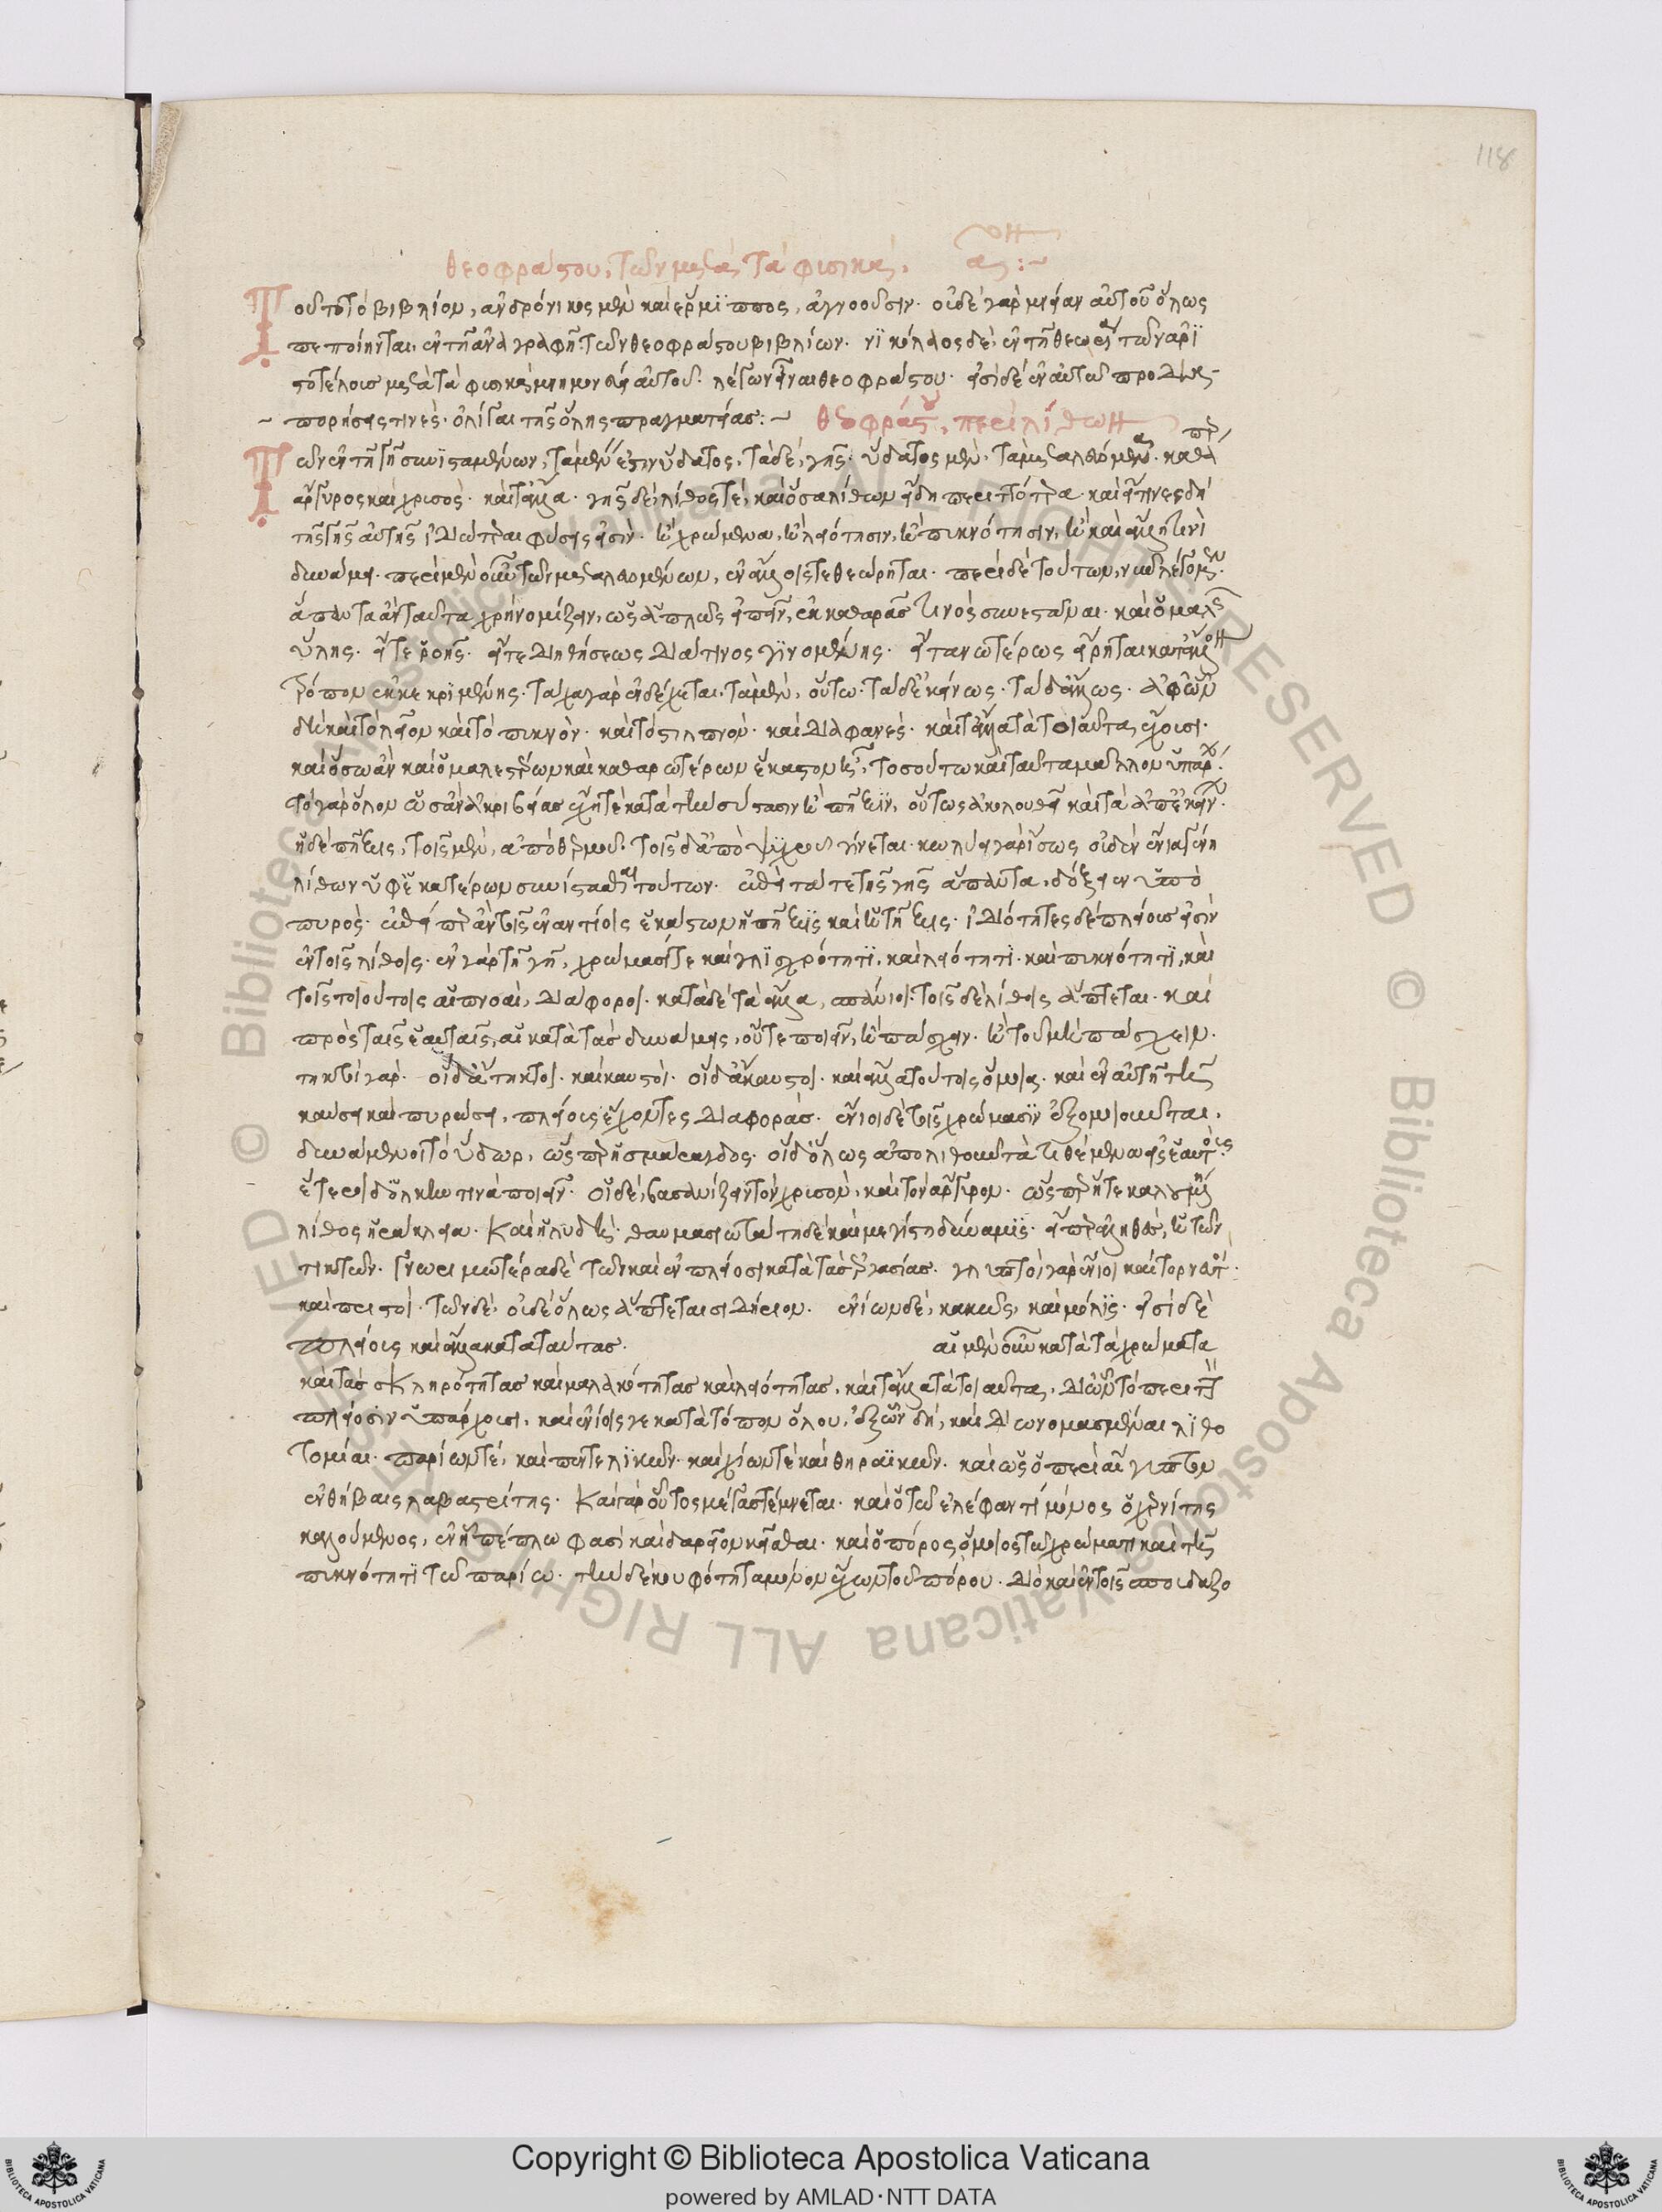 118
θεοφράστου, τῶν μετὰ τὰ φυσικά, α:~
Τοῦτο τὸ βιβλίον, ἀνδρόνικος μὲν καὶ ἕρμιππος, ἀγνοοῦσιν. οὐδὲ γὰρ μνείαν αὐτοῦ ὅλως
πεποίηνται, ἐν τῇ ἀναγραφῇ τῶν θεοφράστου βιβλίων. νικόλαος δὲ, ἐν τῇ θεωρίᾳ τῶν ἀρι
στοτέλους μετὰ τὰ φυσικὰ, μνημονεύει αὐτοῦ. λέγων εἶναι θεοφράστου. εἰσὶ δὲ ἐν αὐτῷ προδια-
~ πορήσεις τινὲς. ὀλίγαι τῆς ὅλης πραγματείας:~ θεοφράστου, περὶ λίθων
Τῶν ἐν τῇ γῇ συνισταμένων, τὰ μέν ἐστιν ὕδατος, τὰ δὲ, γῆς. ὕδατος μὲν, τὰ μεταλλευόμενα. καθάπερ
ἄργυρος καὶ χρυσὸς. καὶ τἆλλα. γῆς δὲ, λίθος τὲ, καὶ ὅσα λίθων εἴδη περιττότερα. καὶ εἴ τινες δὴ
τῆς γῆς αὐτῆς ἰδιώτεραι φύσεις εἰσὶν. ἢ χρώμασιν, ἢ λειότησιν, ἢ πυκνότησιν, ἢ καὶ ἄλλῃ τινὶ
δυνάμει. περὶ μὲν οὖν τῶν μεταλλευομένων, ἐν ἄλλοις τεθεώρηται. περὶ δὲ τούτων, νῦν λέγομεν.
ἅπαντα οὖν ταῦτα χρὴ νομίζειν, ὡς ἁπλῶς εἰπεῖν, ἐκ καθαρᾶς τινὸς συνεστάναι. καὶ ὁμαλῆς
ὕλης. εἴτε ῥοῆς. εἴτε διηθήσεως διά τινος γινομένης. εἴτ' ἀνωτέρως εἴρηται κατ' ἄλλον
τρόπον ἐκκεκριμένης. τάχα γὰρ ἐνδέχεται, τὰ μὲν, οὕτω. τὰ δ' ἐκείνως. τὰ δ' ἄλλως. ἀφ' ὧν
δὴ καὶ τὸ λεῖον καὶ τὸ πυκνὸν. καὶ τὸ στιλπνὸν. καὶ διαφανὲς. καὶ τἆλλα τὰ τοιαῦτα ἔχουσι.
καὶ ὅσῳ ἂν καὶ ὁμαλεστέρων καὶ καθαρωτέρων ἕκαστον ᾖ, τοσούτῳ καὶ ταῦτα μᾶλλον ὑπάρχει.
τὸ γὰρ ὅλον ὡς ἂν ἀκριβείας ἔχῃ τὲ κατὰ τὴν σύστασιν ἢ πῆξιν, οὕτως ἀκολουθεῖ καὶ τὰ ἀπ' ἐκείνων.
ἡ δὲ πῆξις, τοῖς μὲν, ἀπὸ θερμοῦ. τοῖς δ' ἀπὸ ψυχροῦ γίνεται. κωλύει γὰρ ἴσως οὐδὲν ἔνια γένη
λίθων ὑφ' ἑκατέρων συνίστασθαι τούτων. ἐπεὶ τά γε τῆς γῆς ἅπαντα, δόξειεν ὑπὸ
πυρὸς. ἐπείπερ ἐν τοῖς ἐναντίοις ἑκάστων ἡ πῆξις καὶ ἡ τῆξις. ἰδιότητες δὲ πλείους εἰσὶν
ἐν τοῖς λίθοις. ἐν γὰρ τῇ γῇ, χρώμασί τε καὶ γλισχρότητι, καὶ λειότητι. καὶ πυκνότητι, καὶ
τοῖς τοιούτοις αἱ πολλαὶ, διαφοραὶ. κατὰ δὲ τὰ ἄλλα, σπάνιοι. τοῖς δὲ λίθοις ἅπτεται. καὶ
πρὸς ταῖς ἑαυταῖς, αἱ κατὰ τὰς δυνάμεις, οὔτε ποιεῖν, ἢ πάσχειν. ἢ τοῦ μὴ πάσχειν.
τηκτοὶ γὰρ. οἱ δ' ἄτηκτοι. καὶ καυστοὶ. οἱ δ' ἄκαυστοι. καὶ ἄλλα τούτοις ὅμοια. καὶ ἐν αὐτῇ τῇ
καύσει καὶ πυρώσει, πλείους ἔχοντες διαφοράς. ἔνιοι δὲ τοῖς χρώμασιν ἐξομοιοῦνται,
δυνάμενοι τὸ ὕδωρ, ὥσπερ ἡ σμάραγδος. οἱ δ' ὅλως ἀπολιθοῦν τὰ τιθέμενα εἰς ἑαυτούς.
ἕτεροι δ' ὁλκήν τινα ποιεῖν. οἱ δὲ, βασανίζειν τὸν χρυσὸν, καὶ τὸν ἄργυρον. ὥσπερ ἥτε καλουμένη
λίθος ἡράκλεια. καὶ ἡ λυδὴ. θαυμασιωτάτη δὲ καὶ μεγίστη δύναμις. εἴπερ ἀληθὲς, ἡ τῶν
τικτόντων. γνωριμωτέρα δὲ τῶν καὶ ἐν πλείοσι κατὰ τὰς ἐργασίας. γλυπτοὶ γὰρ ἔνιοι καὶ τορνευτοὶ.
καὶ πριστοὶ. τῶν δὲ, οὐδὲ ὅλως ἅπτεται σιδήριον. ἐνίων δὲ, κακῶς, καὶ μόλις. εἰσὶ δὲ
πλείους καὶ ἄλλαι κατὰ ταύτας. αἱ μὲν οὖν κατὰ τὰ χρώματα
καὶ τὰς σκληρότητας καὶ μαλακότητας καὶ λειότητας, καὶ τἆλλα τὰ τοιαῦτα, δι' ὧν τὸ περιττὸν
πλείοσιν ὑπάρχουσι, καὶ ἐνίοις γε κατὰ τόπον ὅλον, ἐξ ὧν δὴ, καὶ διωνομασμέναι λιθο
τομίαι. παρίων τὲ, καὶ πεντελικῶν. καὶ χίων τὲ καὶ θηβαϊκῶν. καὶ ὡς ὁ περὶ αἴγυπτον
ἐν θήβαις ἀλαβαστρίτης. καὶ γὰρ οὗτος μέγας τέμνεται. καὶ ὁ τῷ ἐλέφαντι ὅμοιος ὁ χερνίτης
καλούμενος, ἐν ᾗ πυέλῳ φασὶ καὶ δαρεῖον κεῖσθαι. καὶ ὁ πόρος ὅμοιος τῷ χρώματι καὶ τῇ
πυκνότητι τῷ παρίῳ. τὴν δὲ κουφότητα μόνον ἔχων τοῦ πόρου. διὸ καὶ ἐν τοῖς σπουδαζο
Copyright © Biblioteca Apostolica Vaticana
powered by AMLAD·NTT DATA